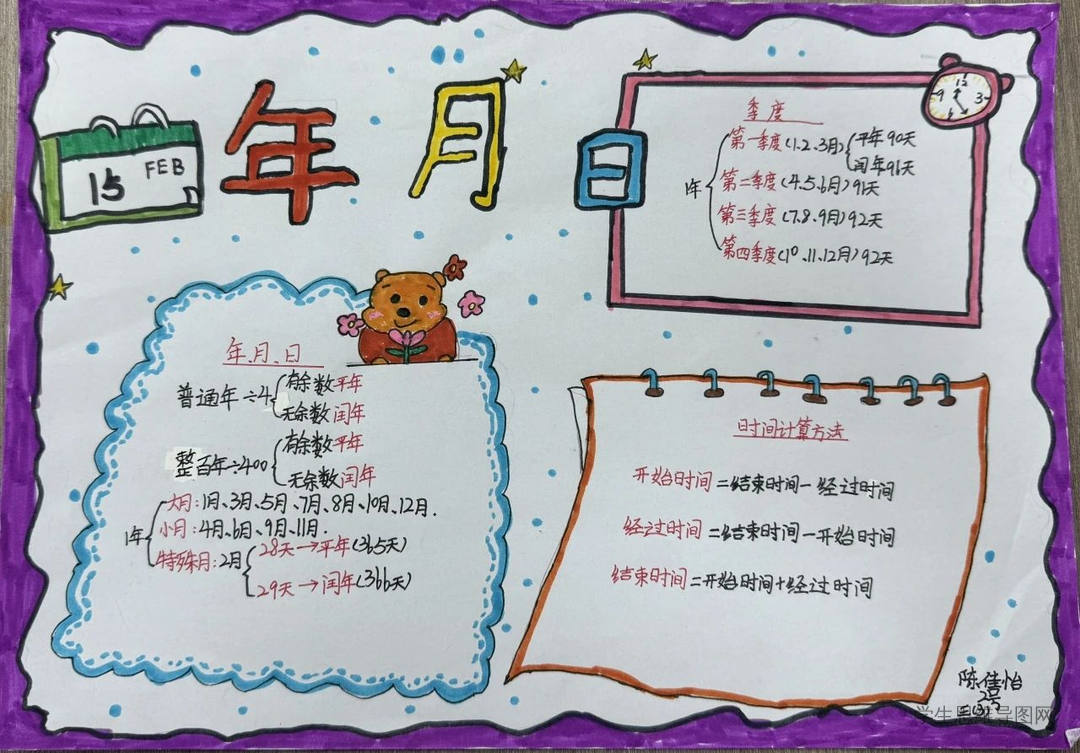 年 月 日
15 FEB
12
9 3
6
季度
1年
第一季度(1.2、3月) 平年90天
闰年91天
第二季度(4.5、6月)91天
第三季度(7、8、9月)92天
第四季度(10、11、12月)92天
年、月、日
普通年÷4 有余数平年
无余数闰年
整百年÷400 有余数平年
无余数闰年
1年
大月:1月、3月、5月、7月、8月、10月、12月.
小月:4月、6月、9月、11月.
特殊月:2月 28天→平年(365天)
29天→闰年(366天)
时间计算方法
开始时间=结束时间-经过时间
经过时间=结束时间-开始时间
结束时间=开始时间+经过时间
陈僖怡
2号
学生思维导图网